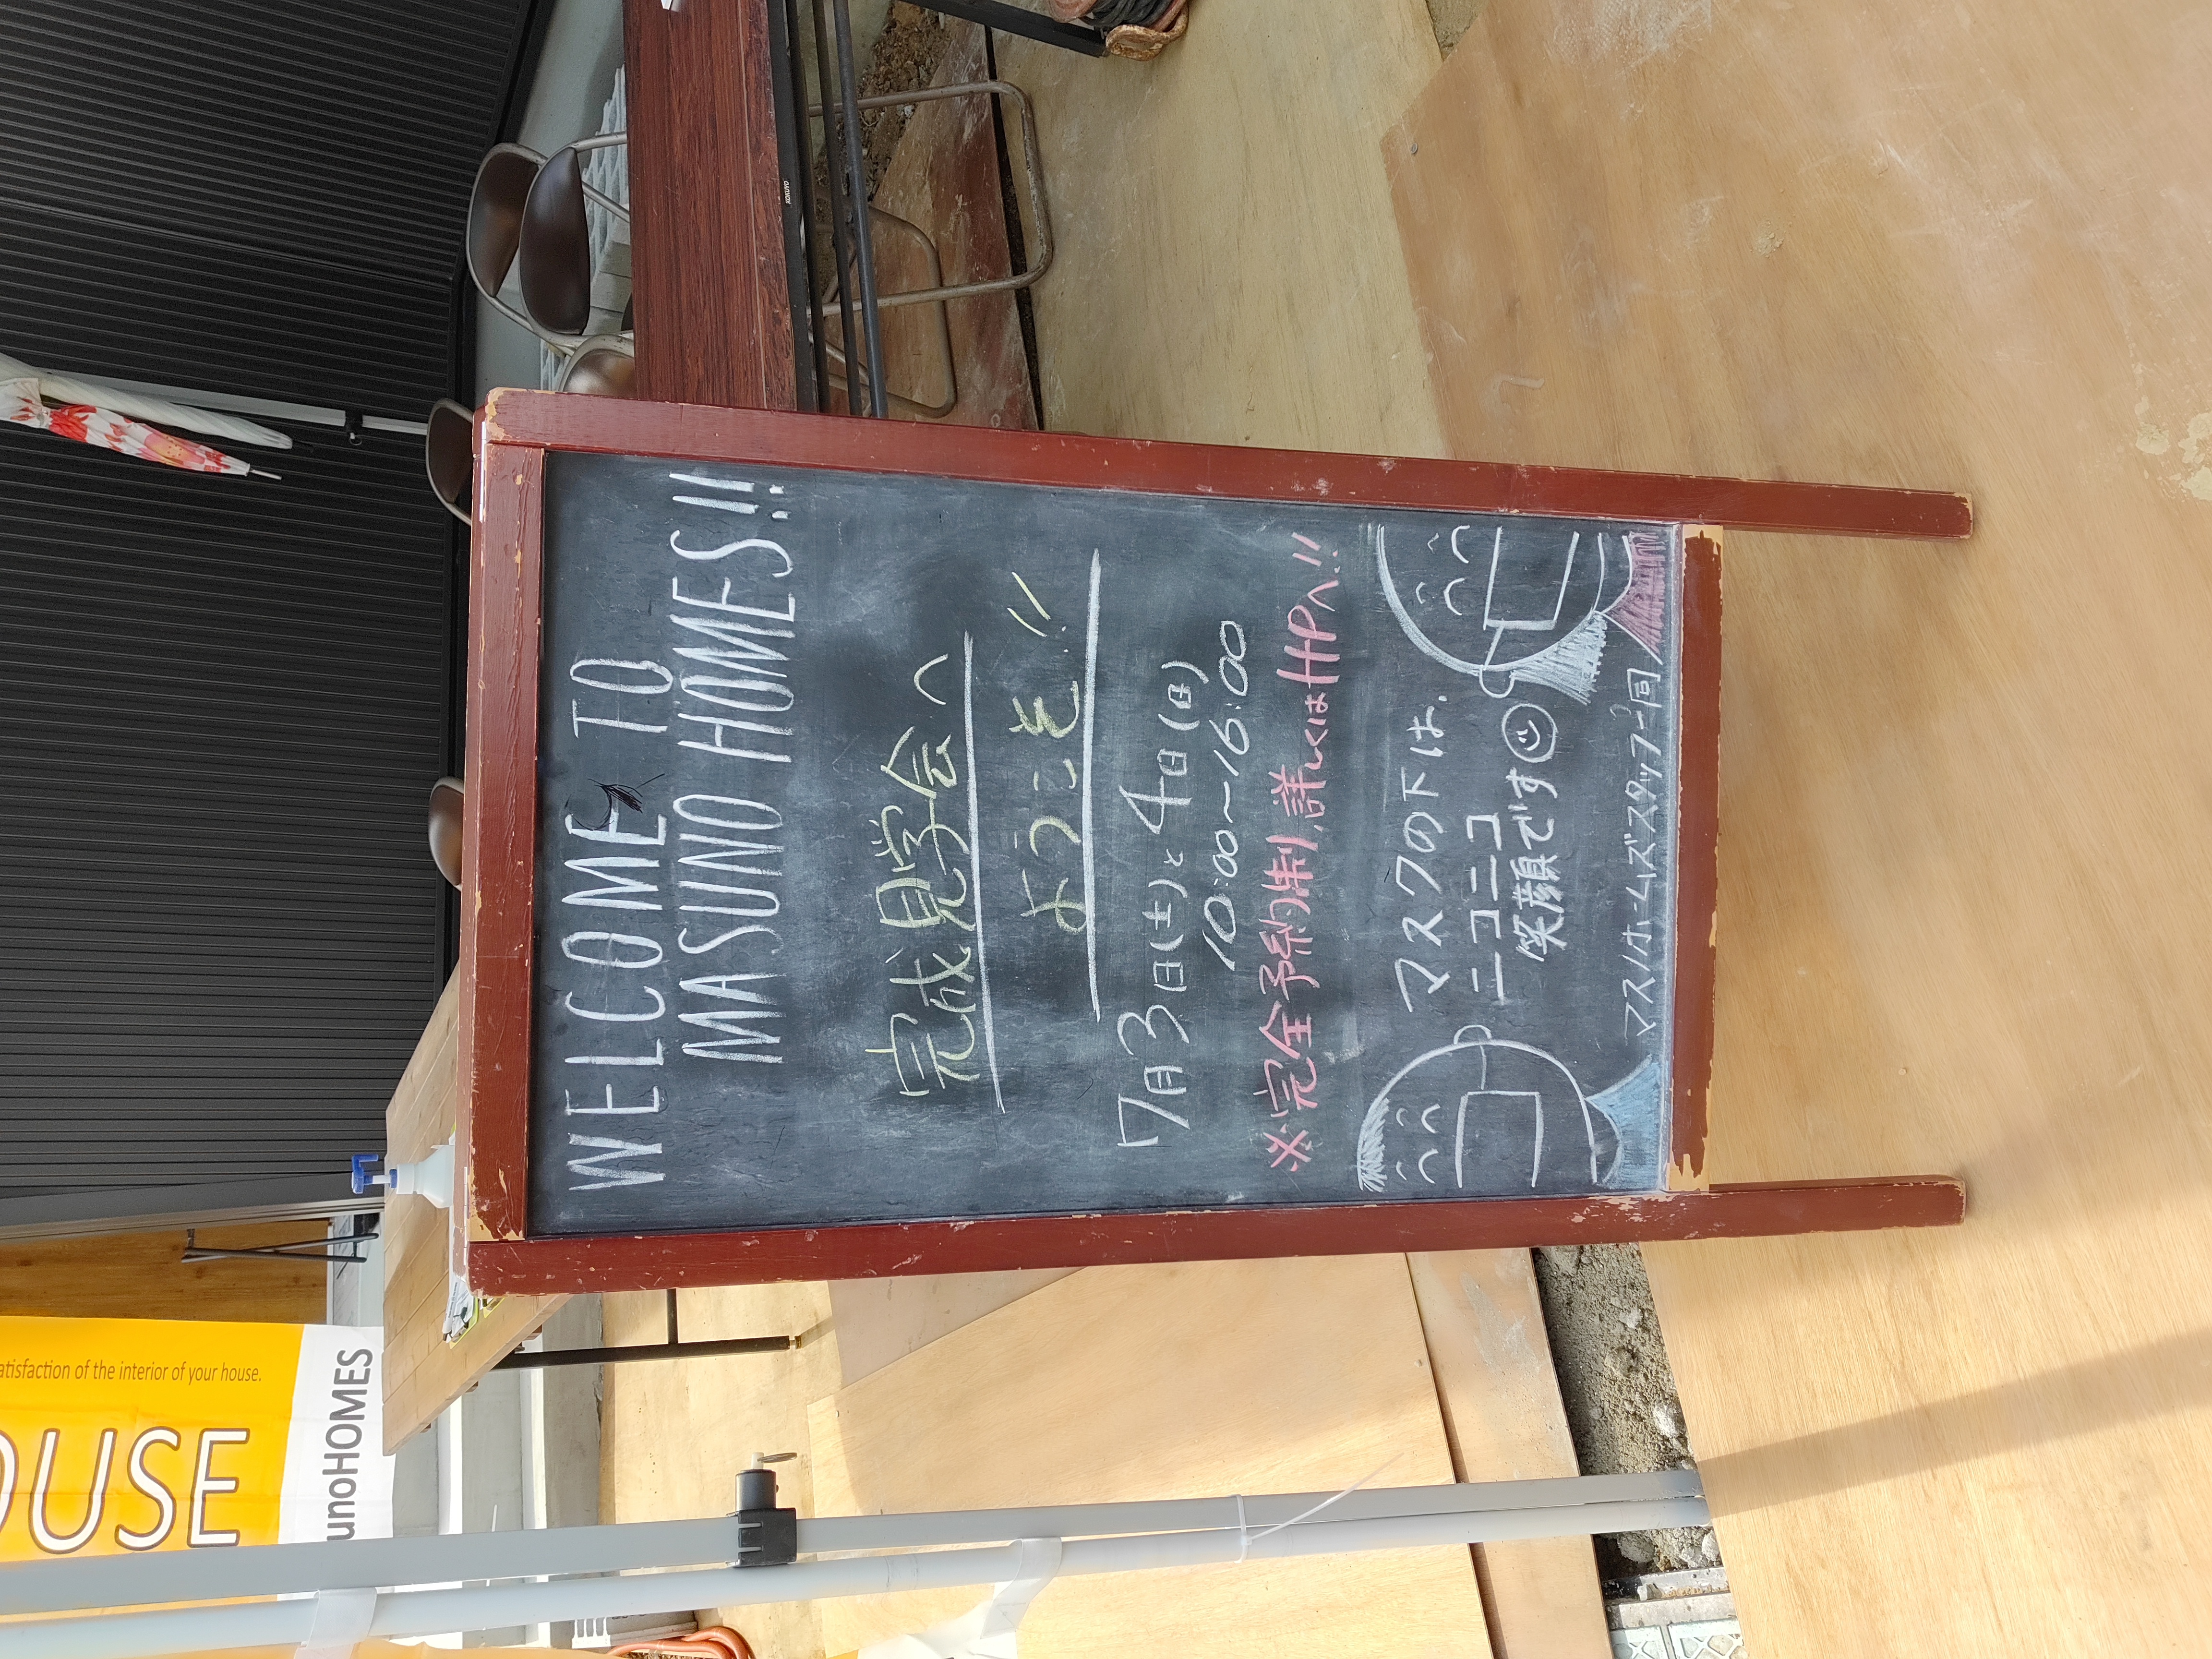 WELCOME TO
MASUNO HOMES!!
完成見学会へ
ようこそ!!
7月3日(土)と4日(日)
10:00~16:00
※完全予約制、詳しくはHPへ!!
マスクの下は、
ニコニコ
笑顔です
マスノホームズスタッフ一同
atisfaction of the interior of your house.
OUSE
unoHOMES
KOKUYO